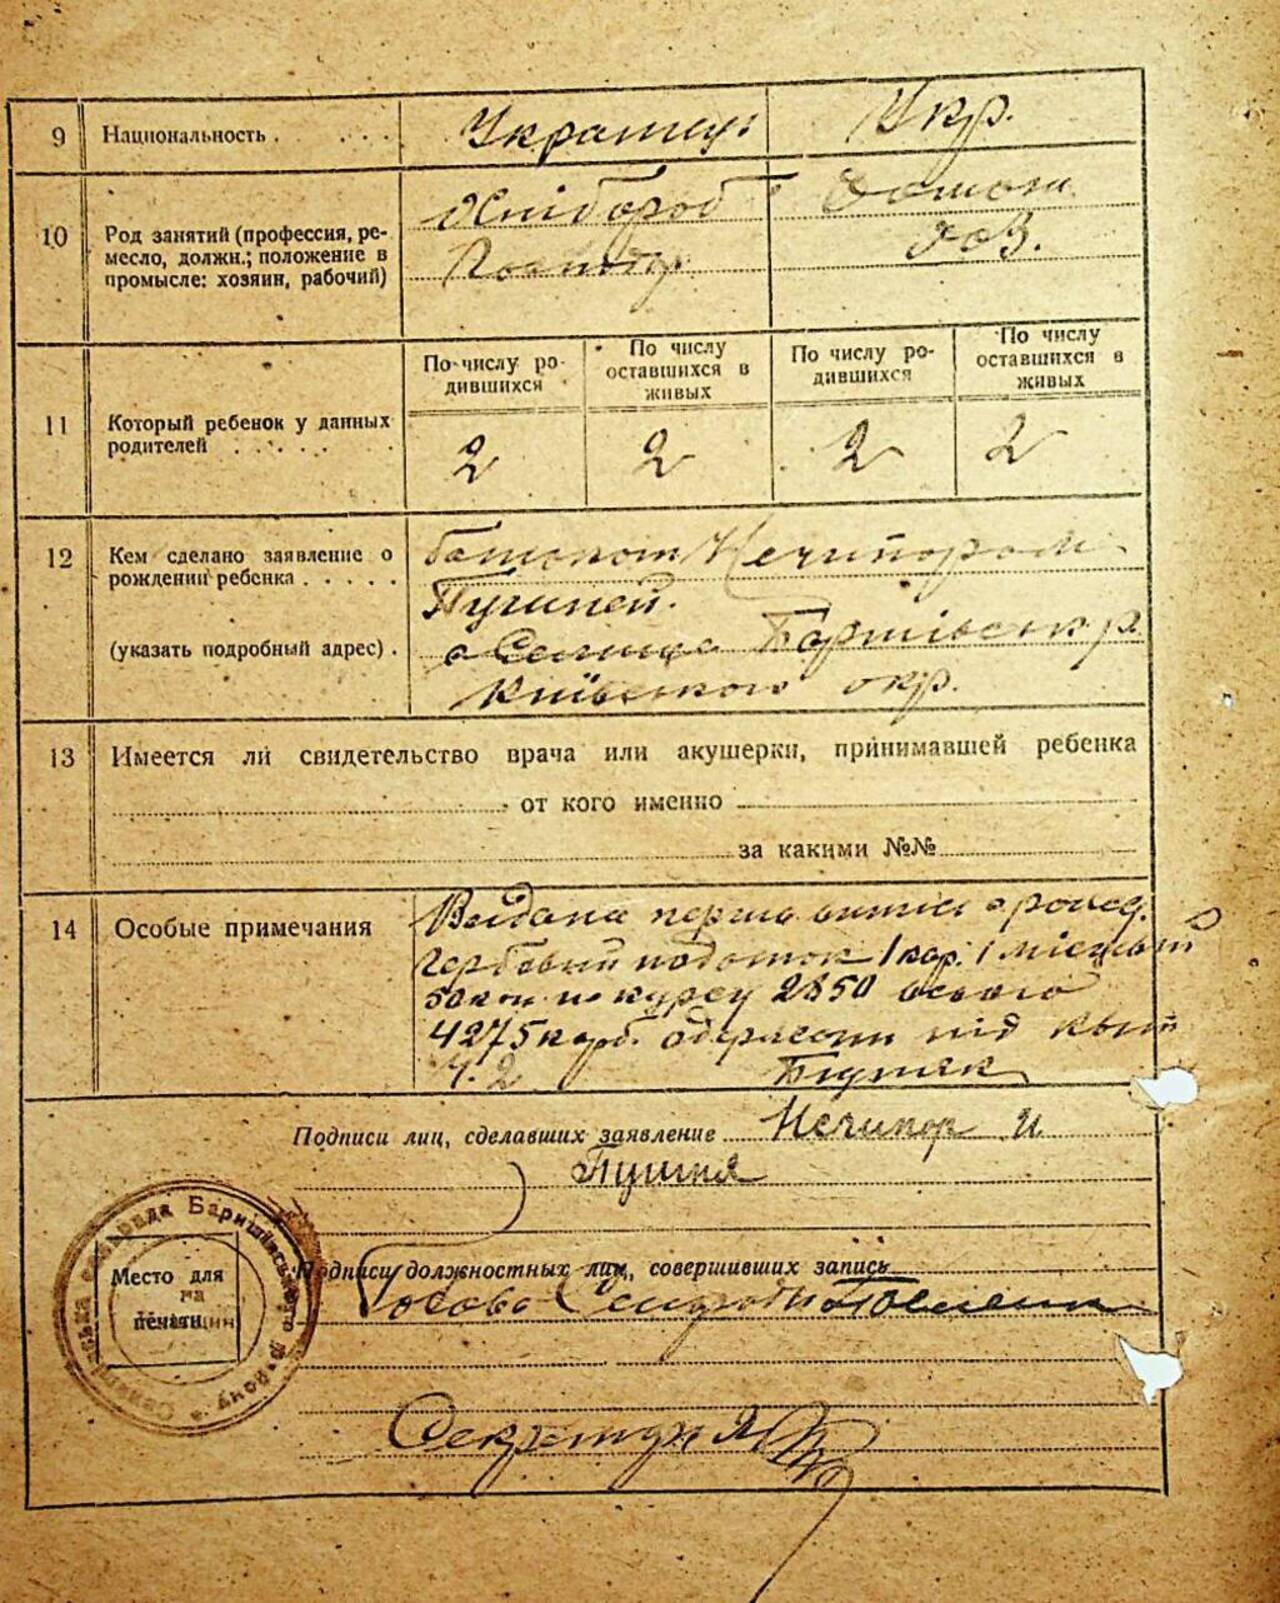 9 Национальность . . . . . Украинец Укр.
10 Род занятий (профессия, ре-
месло, должн.; положение в
промысле: хозяин, рабочий)
Хлібороб
11 Который ребенок у данных
родителей . . . . . .
По числу ро-
дившихся
По числу
оставшихся в
живых
По числу ро-
дившихся
По числу
оставшихся в
живых
2 2 2 2
12 Кем сделано заявление о
рождении ребенка . . . . .
(указать подробный адрес) .
батьком Нечипором
с Селище Баришівськ р.
Київської окр.
13 Имеется ли свидетельство врача или акушерки, принимавшей ребенка
от кого именно
за какими №№
14 Особые примечания
Видана перша о рожд.
гербовий податок 1 кар. 1 місцевий
по курсу 2850 всього
4275 карб. одержані під квит
ч. 2
Подписи лиц, сделавших заявление Нечипор
Подписи должностных лиц, совершивших запись
Голова Сільради
Секретарь
Место для
печати